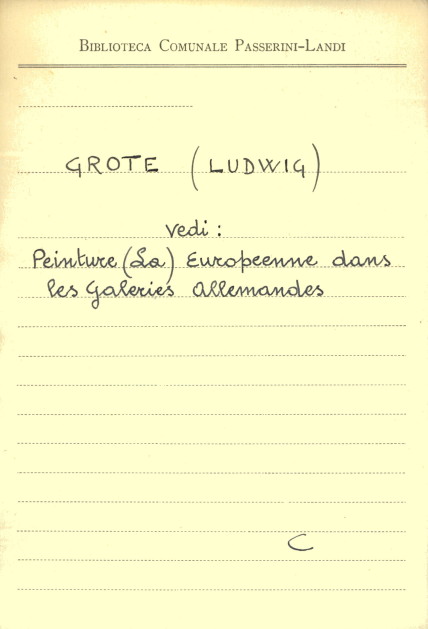 BIBLIOTECA COMUNALE PASSERINI-LANDI
GROTE (LUDWIG)
vedi:
Peinture (La) Europeenne dans
les Galeries Allemandes
C